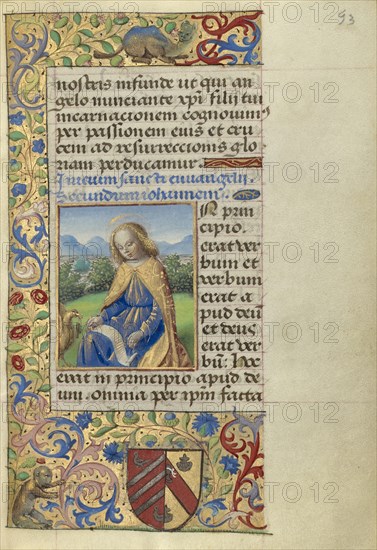 93
nostris infunde ut qui an
gelo nunciante xpi filij tui
incarnacionem cognovim
per passionem eius et cru
cem ad resurrectionis glo
riam perducamur.
Inicium sancti evvangelii
Secundum iohannem
In prin
cipio
erat ver
bum et
verbum
erat a
pud deu
et deus
erat ver
bu: hoc
erat in principio apud de
um. omnia per ipm facta
PHOTO 12